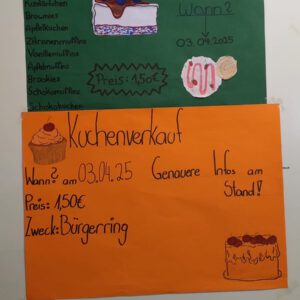 Brownies
Apfelkuchen
Zitronenmuffins
Vanillemuffins
Apfelmuffins
Brookies
Schokomuffins
Schokokuchen
Wann?
03.04.2025
Preis: 1,50€
Kuchenverkauf
Wann? am 03.04.25 Genauere Infos am
Stand!
Preis: 1,50€
Zweck: Bürgerring